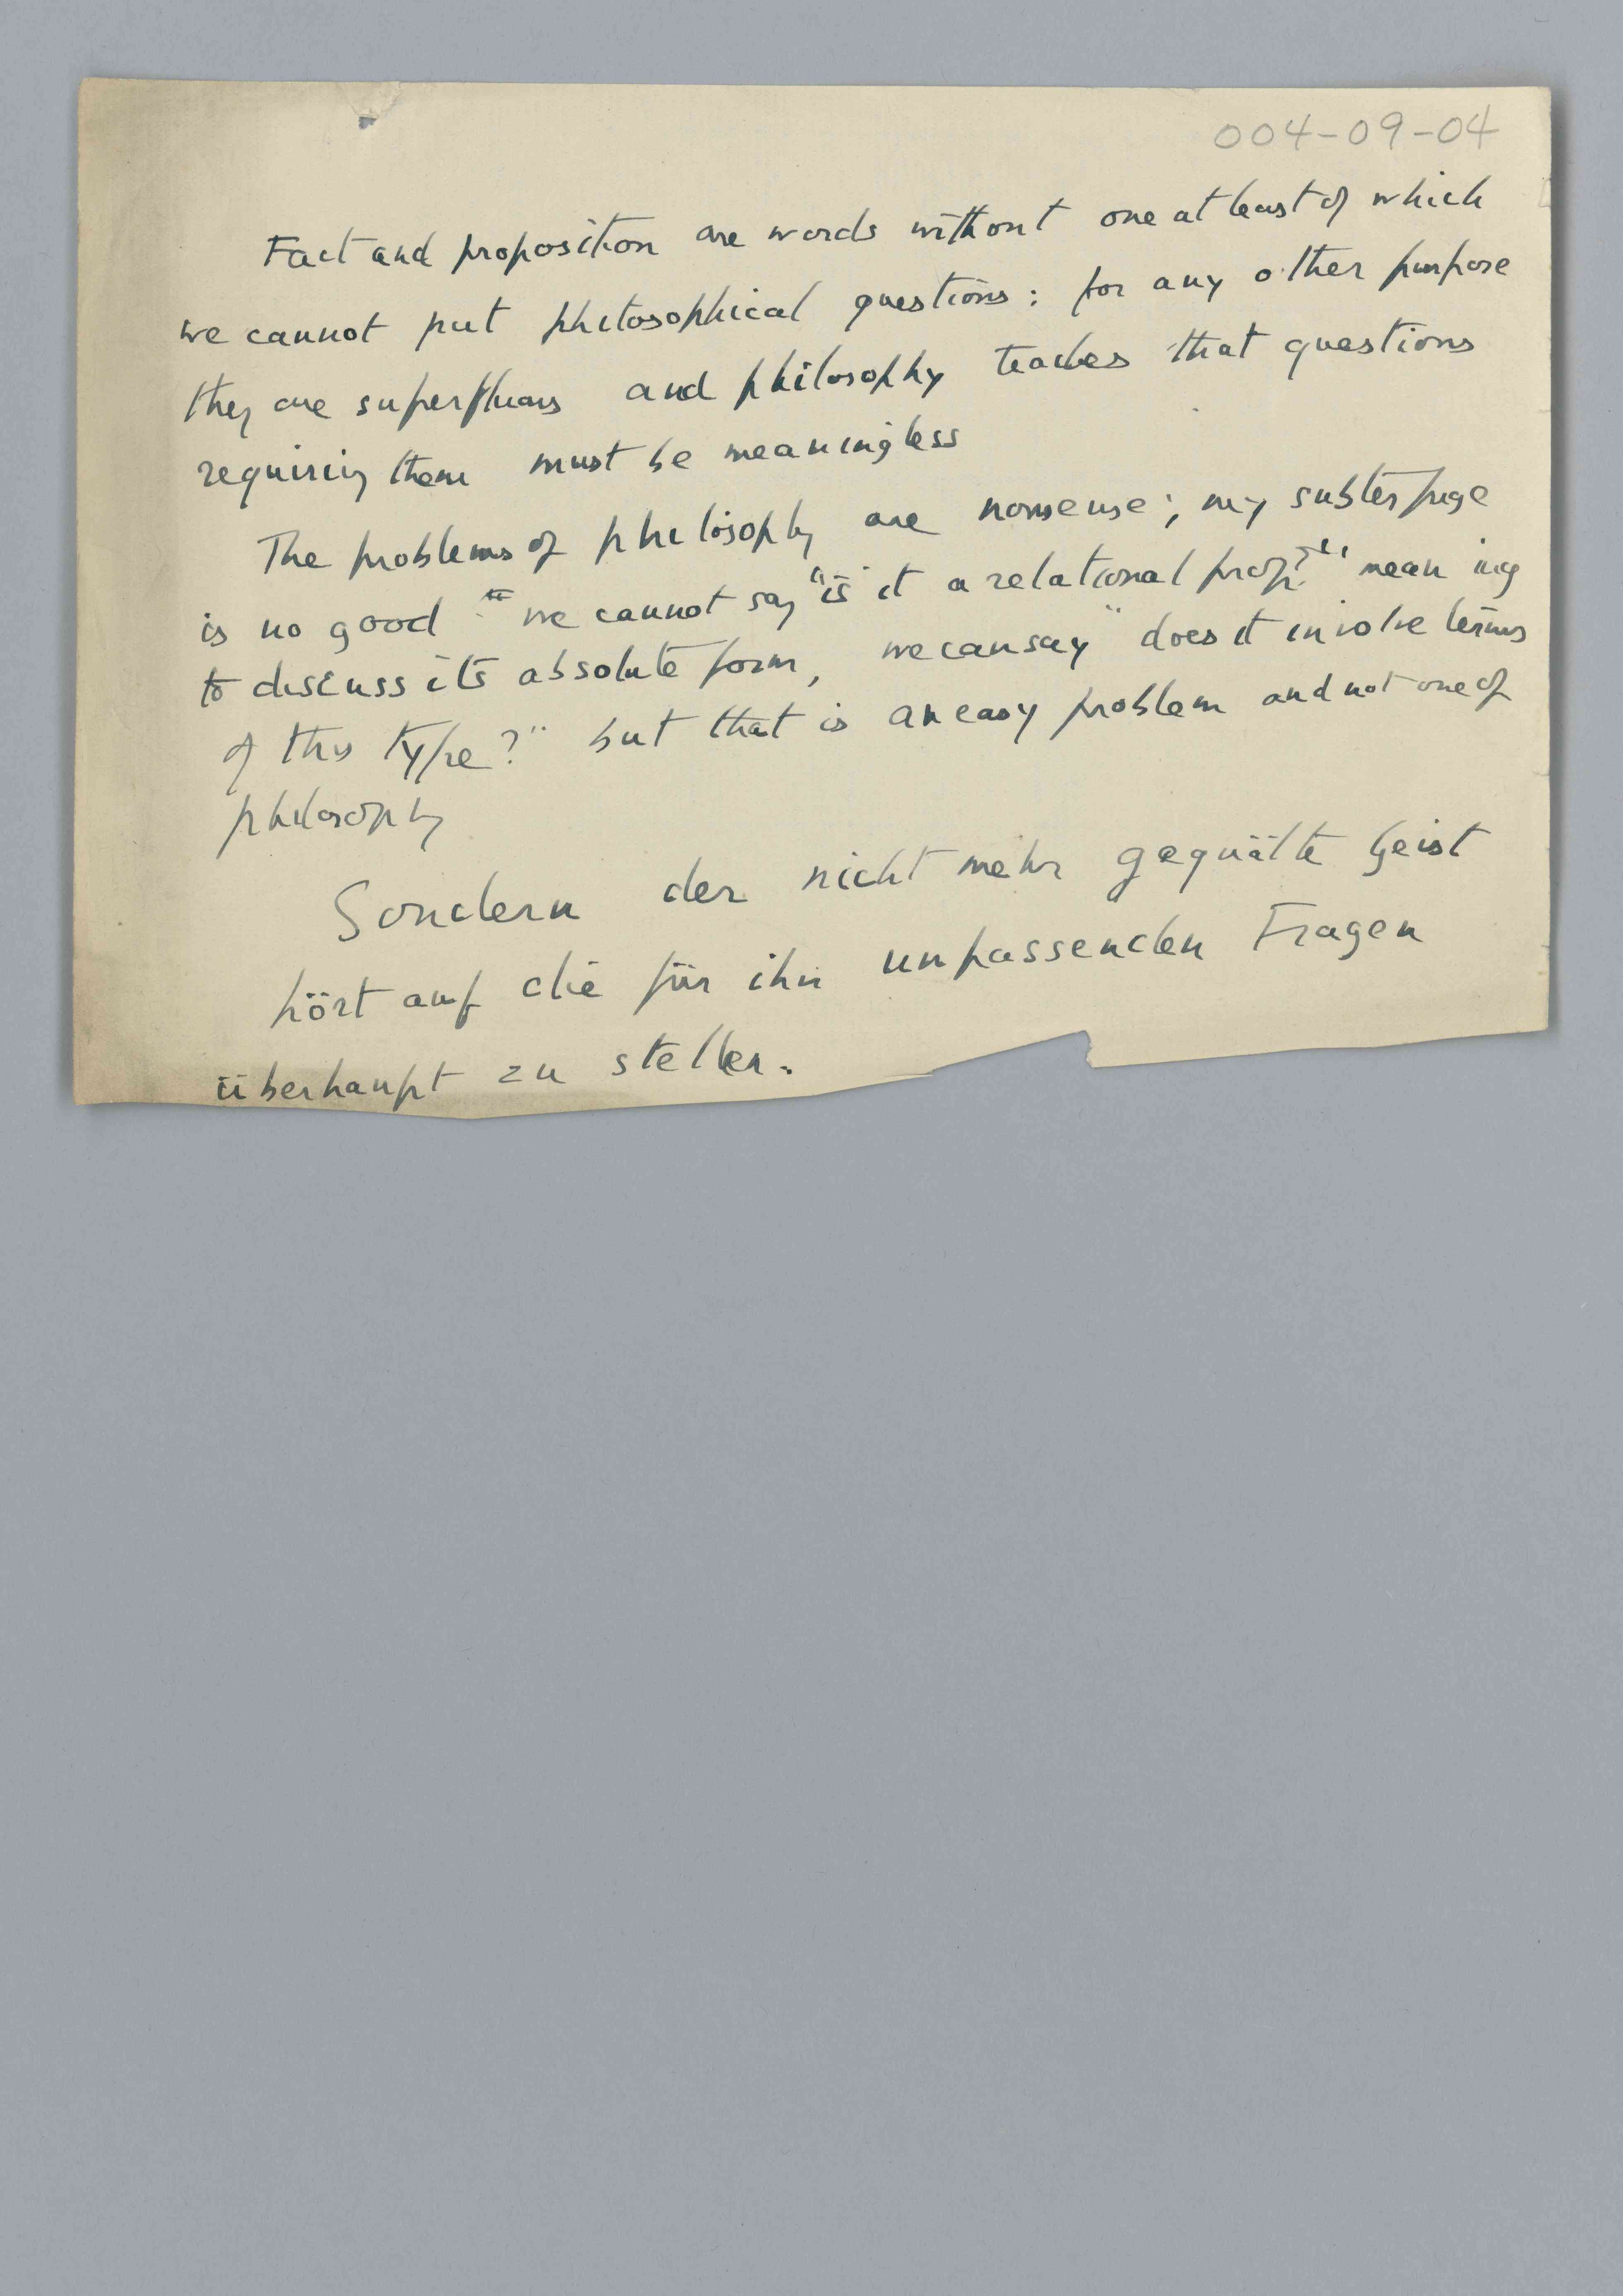 004-09-04
Fact and proposition are words without one at least of which
we cannot put philosophical questions: for any other purpose
they are superfluous and philosophy teaches that questions
requiring them must be meaningless
The problems of philosophy are nonsense; my subterfuge
is no good we cannot say "is it a relational prop?" meaning
to discuss its absolute form, we can say "does it involve terms
of this type?" but that is an easy problem and not one of
philosophy
Sondern der nicht mehr gequälte Geist
hört auf die für ihn unpassenden Fragen
überhaupt zu stellen.